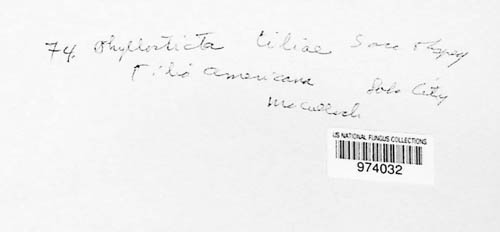 74. Phyllosticta tiliae Sacc & Speg
Tilia americana Solo City
McCulloch
US NATIONAL FUNGUS COLLECTIONS
974032